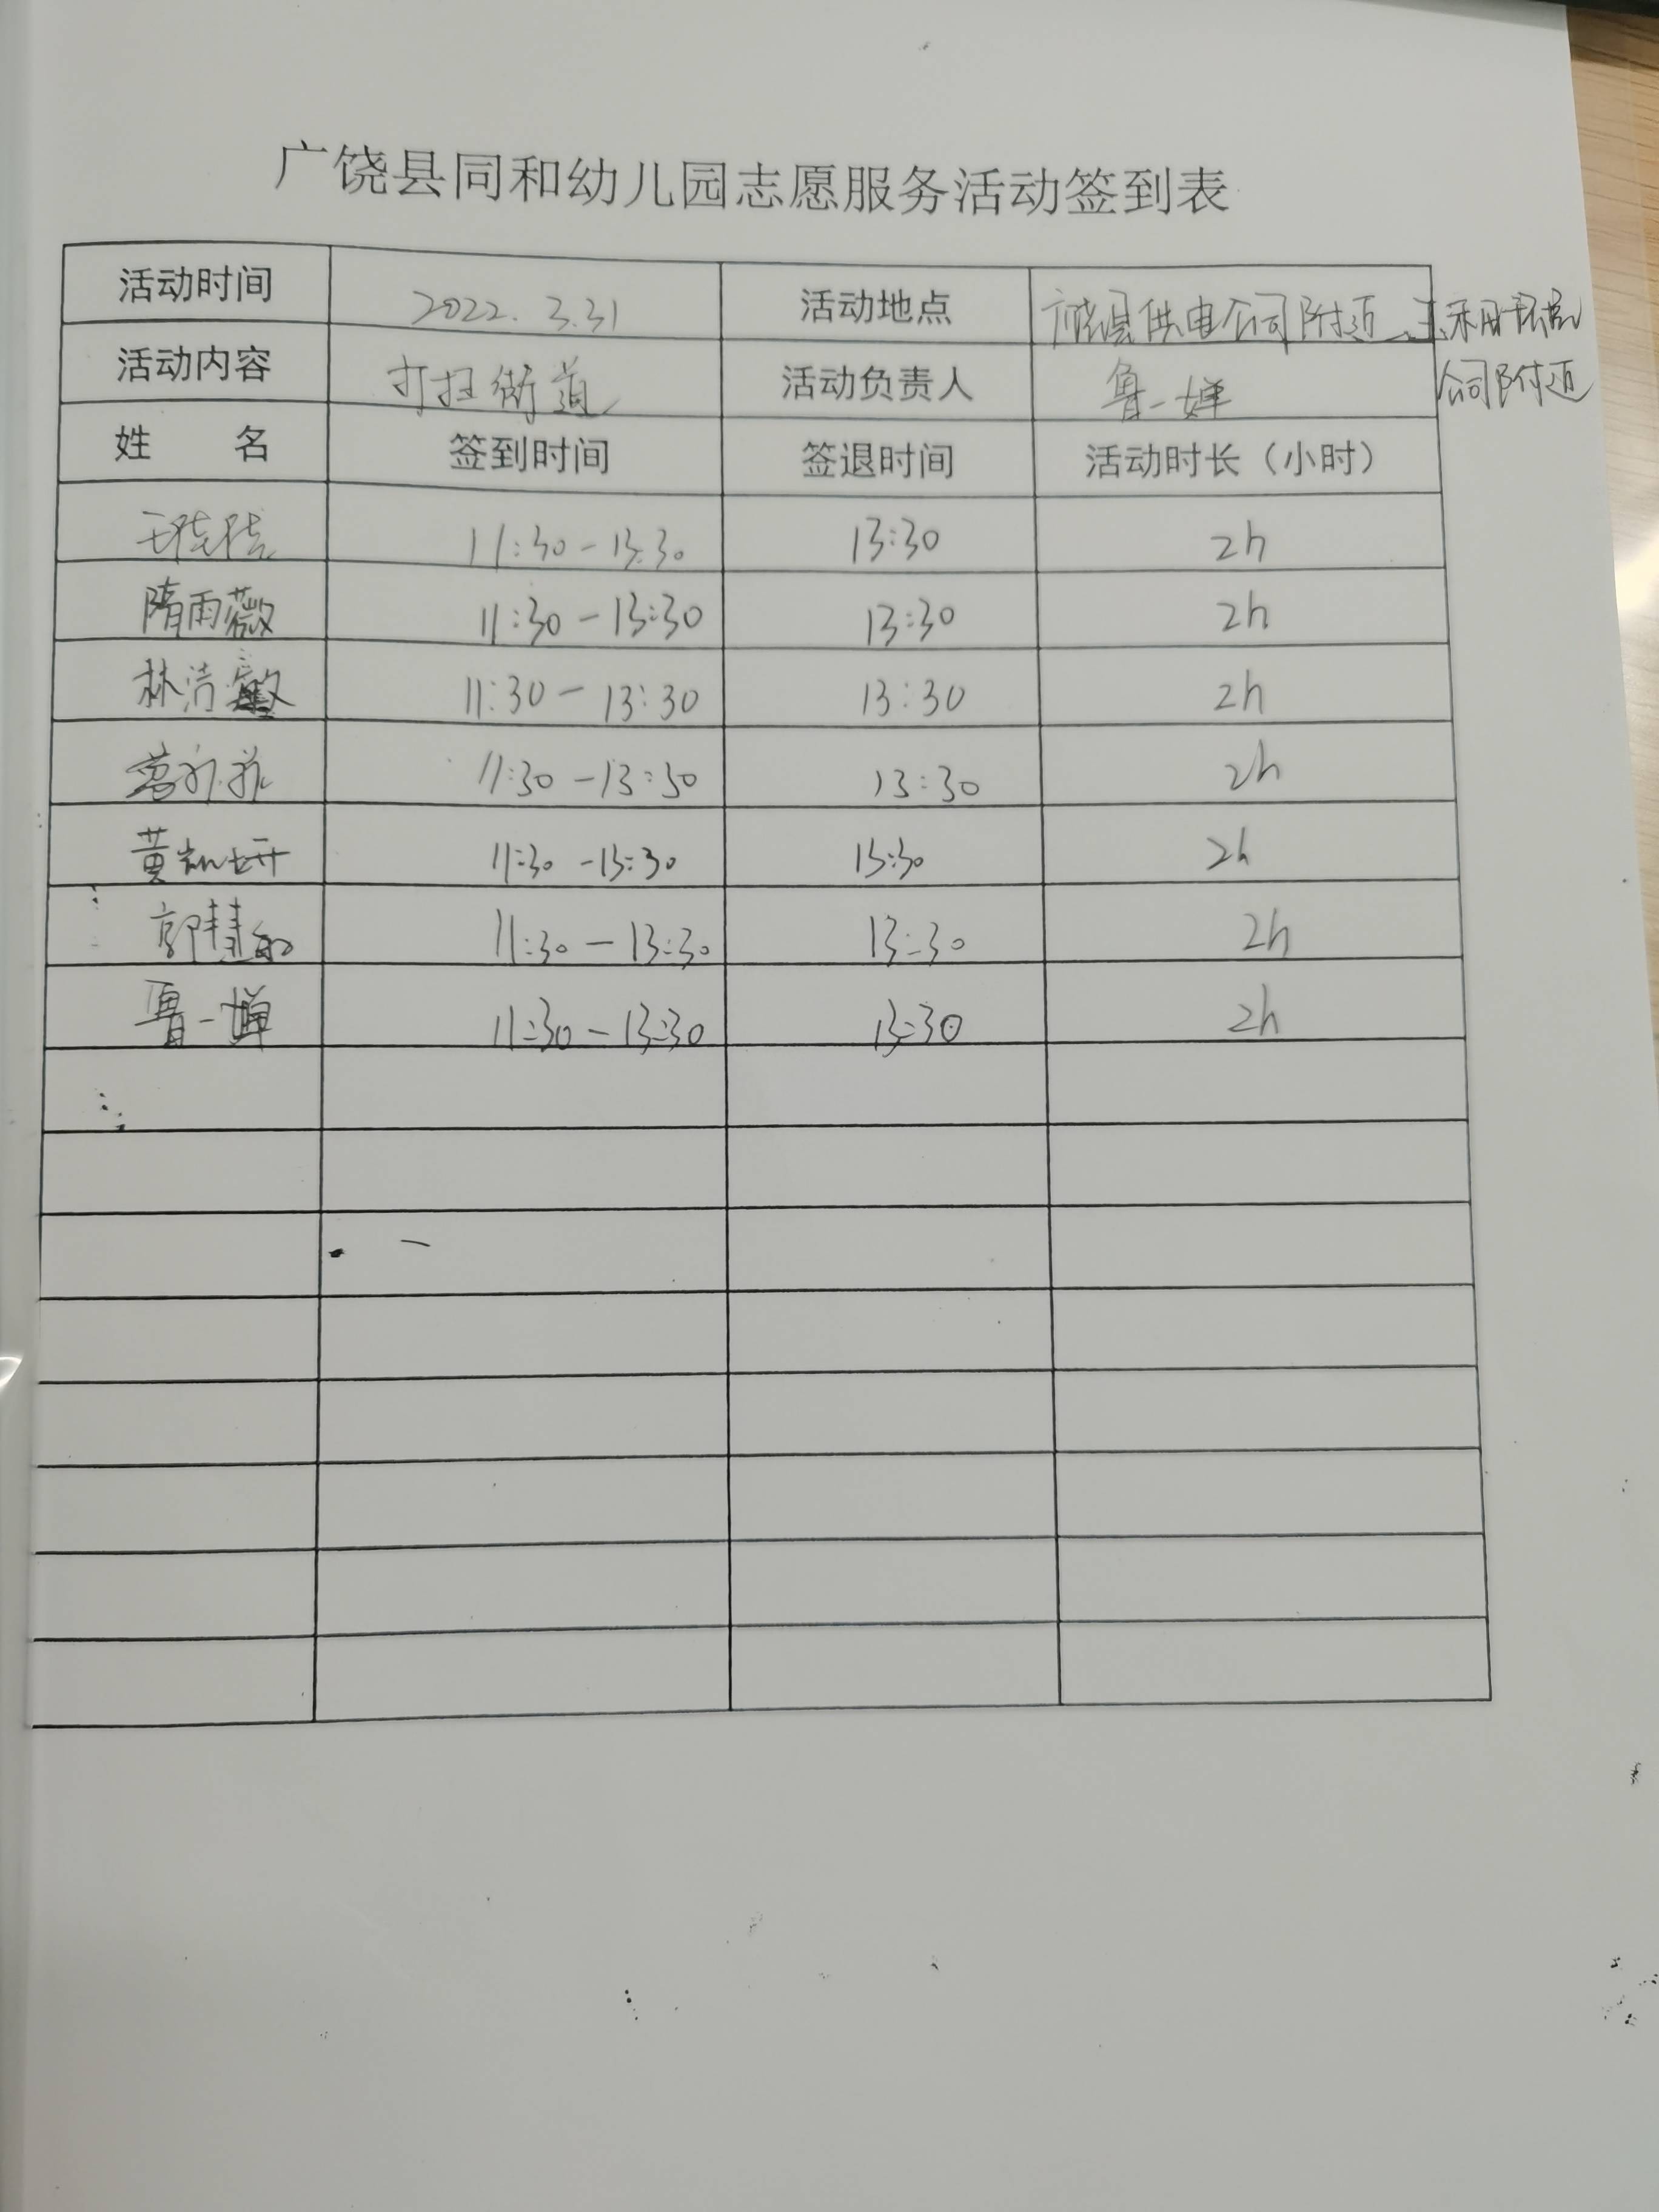 广饶县同和幼儿园志愿服务活动签到表
活动时间 2022.3.31 活动地点 广饶县供电公司附近、
公司附近
活动内容 打扫街道 活动负责人 鲁一婵
姓 名 签到时间 签退时间 活动时长（小时）
11:30-13:30 13:30 2h
隋雨薇 11:30-13:30 13:30 2h
林洁敏 11:30-13:30 13:30 2h
11:30-13:30 13:30 2h
黄 11:30-13:30 13:30 2h
郭慧 11:30-13:30 13:30 2h
鲁一婵 11:30-13:30 13:30 2h